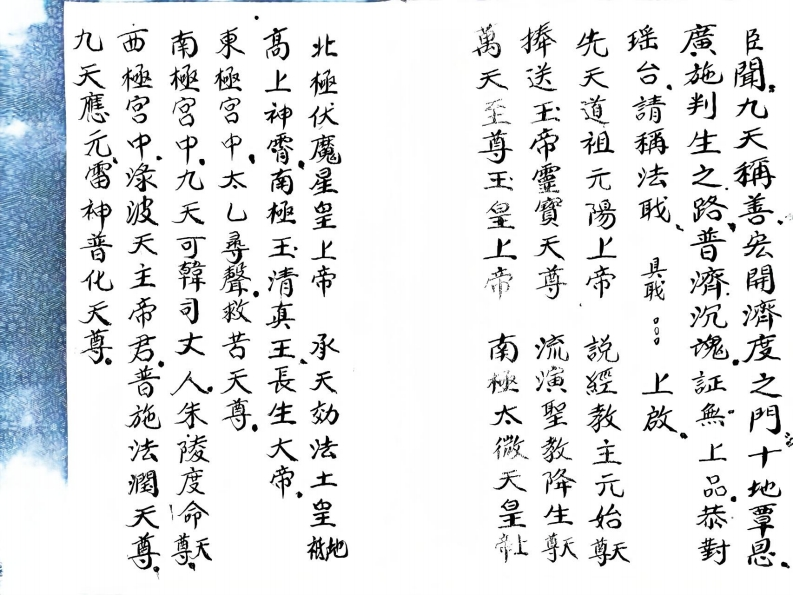 臣聞九天稱善宏開濟度之門十地覃恩
廣施判生之路普濟沉魂証無上品恭對
瑶台請稱法戢 具戢 上啟
先天道祖元陽上帝 說經教主元始天尊
捧送玉帝靈寶天尊 流演聖教降生天尊
萬天至尊玉皇上帝 南極太微天皇上帝
北極伏魔星皇上帝 承天効法土皇地祗
高上神霄南極玉清真王長生大帝
東極宮中太乙尋聲救苦天尊
南極宮中九天可韓司丈人朱陵度命天尊
西極宮中渌波天主帝君普施法潤天尊
九天應元雷神普化天尊